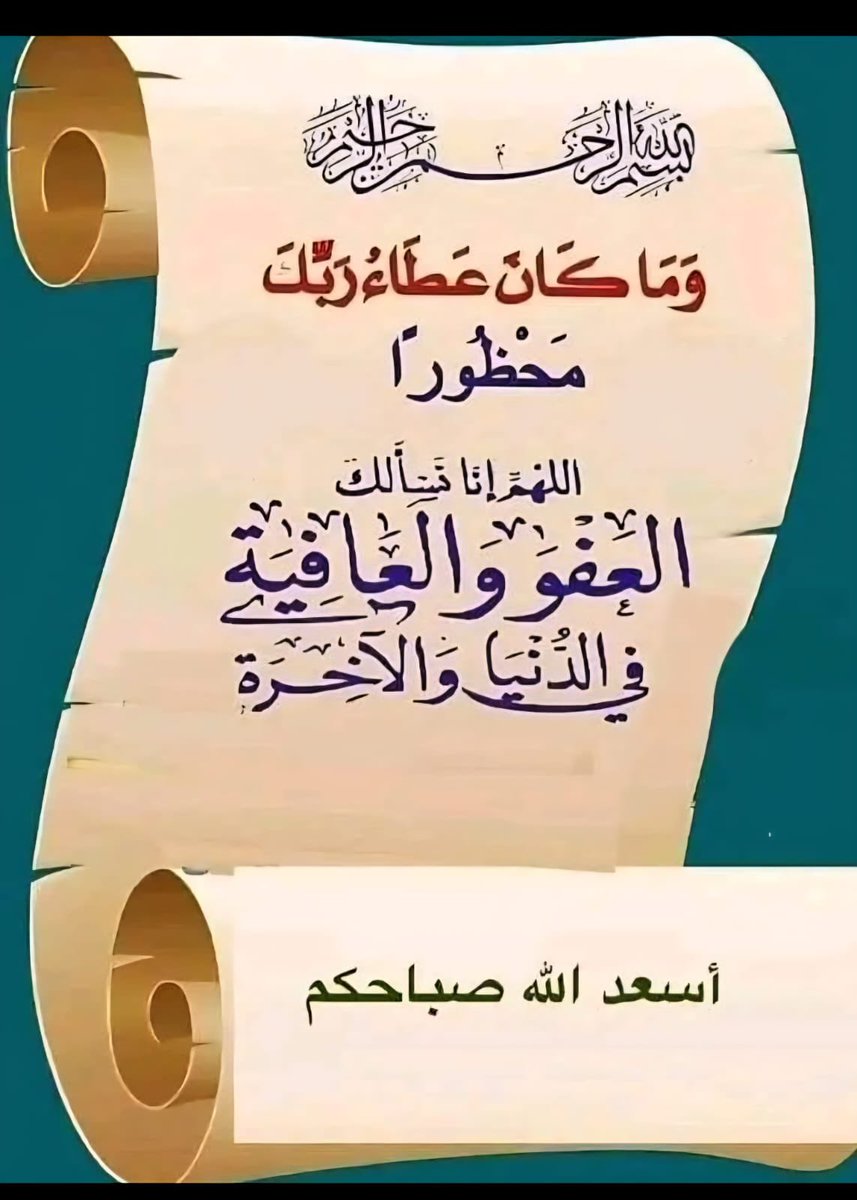 بسم الله الرحمن الرحيم
وَمَا كَانَ عَطَاءُ رَبِّكَ
مَحْظُورًا
اللهمَّ إنَا نَسأَلك
العَفوَ وَالعَافِيَة
في الدُّنْيَا وَالآخِرَة
أسعد الله صباحكم